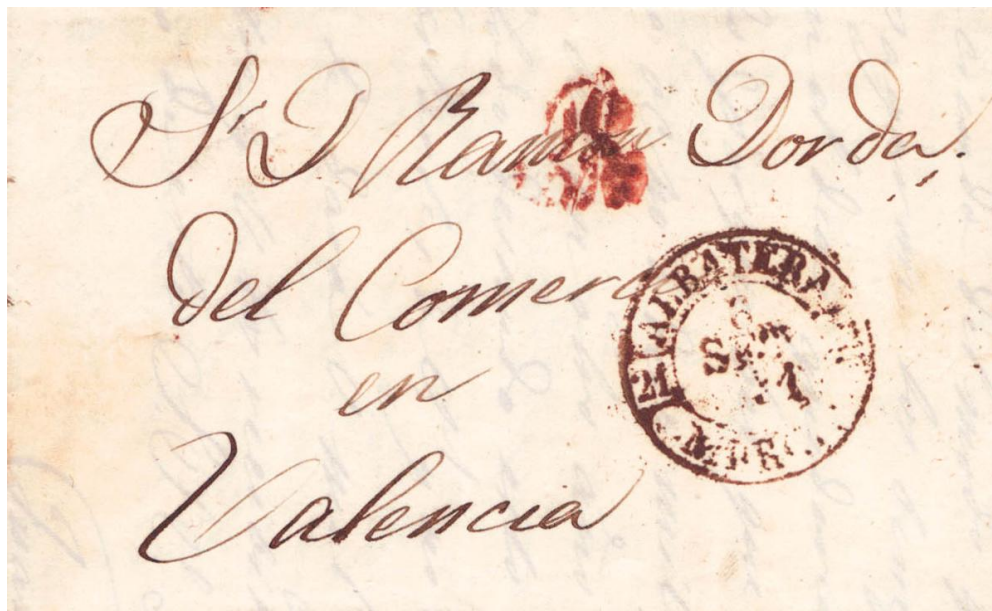 Sr. D. Ramon Dorda.
del Comercio
en
Valencia
ALBATERA
21
8
SET.
MURC